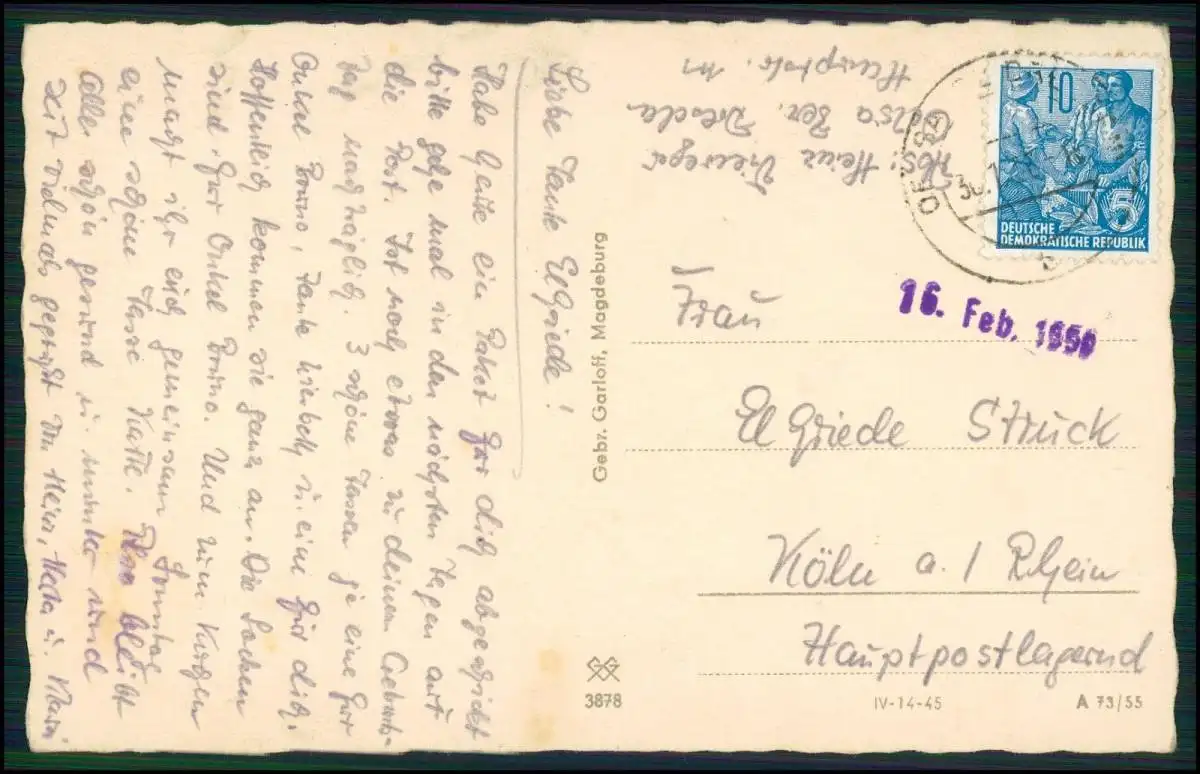 Liebe Tante Elfriede!
Habe heute ein Paket für dich abgeschickt
bitte gehe mal in den nächsten Tagen auf
die Post. Ist noch etwas zu deinem Geburts-
tag nachträglich. 3 schöne Tassen je eine für
Onkel Bruno, Tante u. eine für dich.
Hoffentlich kommen die ganz an. Die Socken
sind für Onkel Bruno. Und zum Kuchen
macht ihr euch gemeinsam Sonntag
eine schöne Tasse Kaffe. Also bleibt
alle schön gesund u. munter und
seid vielmals gegrüßt von Heinz, Herta u.
Abs: Heinz
Bez. Dresden
Hauptstr. 111
DEUTSCHE
DEMOKRATISCHE REPUBLIK
10
5
30.1
16. Feb. 1956
Frau
Elfriede Struck
Köln a. / Rhein
Hauptpostlagernd
Gebr. Garloff, Magdeburg
3878
IV-14-45
A 73/55